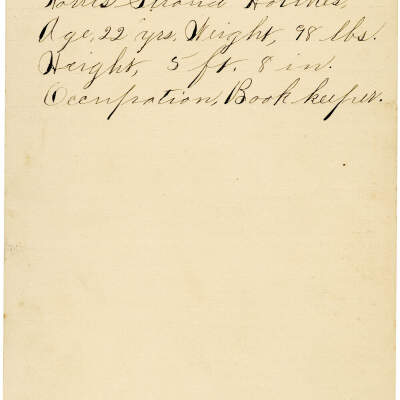 Age, 22 yrs. Weight, 98 lbs.
Height, 5 ft. 8 in.
Occupation, Book keeper.